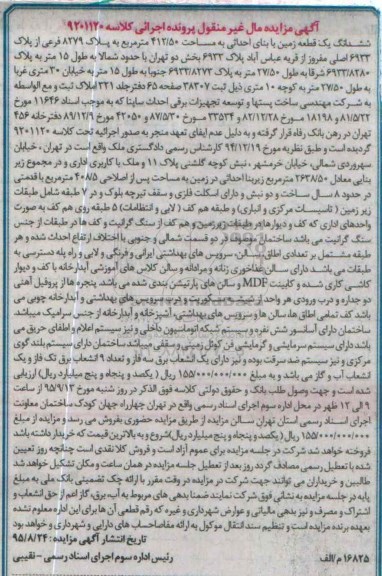 آگهی مزایده مال غیر منقول پرونده اجرائی کلاسه ۹۲۰۱۱۲۰
ششدانگ یک قطعه زمین با بنای احداثی به مساحت ۴۱۲/۵۰ مترمربع به پلاک ۸۲۷۹ فرعی از پلاک
۶۹۳۳ اصلی مفروز از قریه عباس آباد پلاک ۶۹۳۳ بخش دو تهران با حدود شمالا به طول ۱۵ متر به پلاک
۶۹۳۳/۸۲۸۰ شرقا به طول ۲۷/۵۰ متر به پلاک ۶۹۳۳/۸۲۷۳ جنوبا به طول ۱۵ متر به خیابان ۳۰ متری غربا
به طول ۲۷/۵۰ متر به کوچه ۱۰ متری ذیل ثبت ۳۸۳۰۷ صفحه ۶۵ دفترجلد ۳۲۱ املاک ثبت و مع الواسطه
به شرکت مهندسی ساخت پستها و توسعه تجهیزات برقی احداث سایتا که به موجب اسناد ۱۱۶۴۶ مورخ
۸۱/۵/۲۲ و ۱۸۱۹۸ مورخ ۸۲/۱۲/۲۸ و ۳۳۵۳۴ مورخ ۸۷/۵/۹ و ۴۲۰۵۰ مورخ ۸۹/۱۲/۹ دفترخانه ۴۵۶
تهران در رهن بانک رفاه قرار گرفته و به دلیل عدم ایفای تعهد منجر به صدور اجرائیه تحت کلاسه ۹۲۰۱۱۲۰
گردیده است و طبق نظریه مورخ ۹۴/۱۲/۱۹ کارشناس رسمی دادگستری ملک واقع است در تهران، خیابان
سهروردی شمالی، خیابان خرمشهر، نبش کوچه گلشنی پلاک ۱۱ و ملک با کاربری اداری و در مجموع زیر
بنایی معادل ۲۶۳۸/۵۰ مترمربع زیربنا احداثی در زمین به مساحت پس از اصلاحی ۴۰۸/۵ مترمربع با قدمتی
در حدود ۸ سال ساخت و دو نبش و دارای اسکلت فلزی و سقف تیرچه بلوک و در ۷ طبقه شامل طبقات
زیر زمین ( تاسیسات مرکزی و انباری) و طبقه هم کف ( لابی و انتظامات) ۵ طبقه روی هم کف به صورت
واحدهای اداری که کف و دیوارها در طبقات زیرزمین و هم کف از سنگ گرانیت و کف ها در طبقات از جنس
سنگ گرانیت می باشد ساختمان در دو قسمت شمالی و جنوبی با اختلاف ارتفاع احداث شده و هر
طبقه مشتمل بر تعدادی اطاق، سالن، سرویس های بهداشتی ایرانی و فرنگی و لابی و راه پله دسترسی به
طبقات می باشد دارای سالن غذاخوری زنانه و مردانه و سالن کلاس های آموزشی آبدارخانه با کف و دیوار
کاشی کاری شده و کابینت MDF و سالن های پارتیشن بندی شده می باشد پنجره ها از پروفیل آهنی
دو جداره و درب ورودی هر واحد از شیشه سکوریت و درب سرویس های بهداشتی و آبدارخانه چوبی می
باشد کف تمامی اطاق ها، سالن ها و سرویس های بهداشتی، آشپزخانه و آبدارخانه از جنس سرامیک میباشد
ساختمان دارای آسانسور شش نفره و سیستم شبکه اتوماسیون داخلی و نیز سیستم اعلام و اطفای حریق می
باشد دارای سیستم سرمایشی و گرمایشی فن کوئل زمینی و سقفی میباشد ساختمان دارای سیستم بلندگوی
مرکزی و نیز سیستم ضد سرقت بوده و نیز دارای یک انشعاب برق سه فاز و تعداد ۹ انشعاب برق تک فاز و یک
انشعاب آب و گاز می باشد و به مبلغ ۱۵۵/۰۰۰/۰۰۰/۰۰۰ ریال ( یکصد و پنجاه و پنج میلیارد ریال) ارزیابی
شده است و جهت وصول طلب بانک و حقوق دولتی کلاسه فوق الذکر در روز شنبه مورخ ۹۵/۹/۱۳ از ساعت
۹ الی ۱۲ ظهر در محل اداره سوم اجرای اسناد رسمی واقع در تهران چهارراه جهان کودک ساختمان معاونت
اجرای اسناد رسمی استان تهران سالن مزایده از طریق مزایده حضوری بفروش می رسد و مزایده از مبلغ
۱۵۵/۰۰۰/۰۰۰/۰۰۰ ریال (یکصد و پنجاه و پنج میلیارد ریال)شروع و به بالاترین قیمت که خریدار داشته باشد
فروخته خواهد شد شرکت در جلسه مزایده برای عموم آزاد است و فروش کلا نقدی است چنانچه روز تعیین
شده با تعطیل رسمی مصادف گردد روز بعد از تعطیل جلسه مزایده در همان ساعت و مکان تشکیل خواهد شد
طالبین و خریداران می توانند جهت شرکت در مزایده در وقت مقرر با ارائه چک تضمینی بانک ملی به مبلغ
پایه در جلسه مزایده به نشانی فوق شرکت نمایند ضمنا بدهی های مربوط به آب برق، گاز اعم از حق انشعاب و
اشتراک و مصرف و نیز بدهی مالیاتی و عوارض شهرداری و غیره که رقم قطعی آن ها برای این اداره معلوم نشده
بعهده برنده مزایده است و تنظیم سند انتقال موکول به ارائه مفاصاحساب های دارایی و شهرداری و خواهد بود
تاریخ انتشار آگهی مزایده : ۹۵/۸/۲۴
۱۶۸۲۵ م/الف رئیس اداره سوم اجرای اسناد رسمی - نقیبی